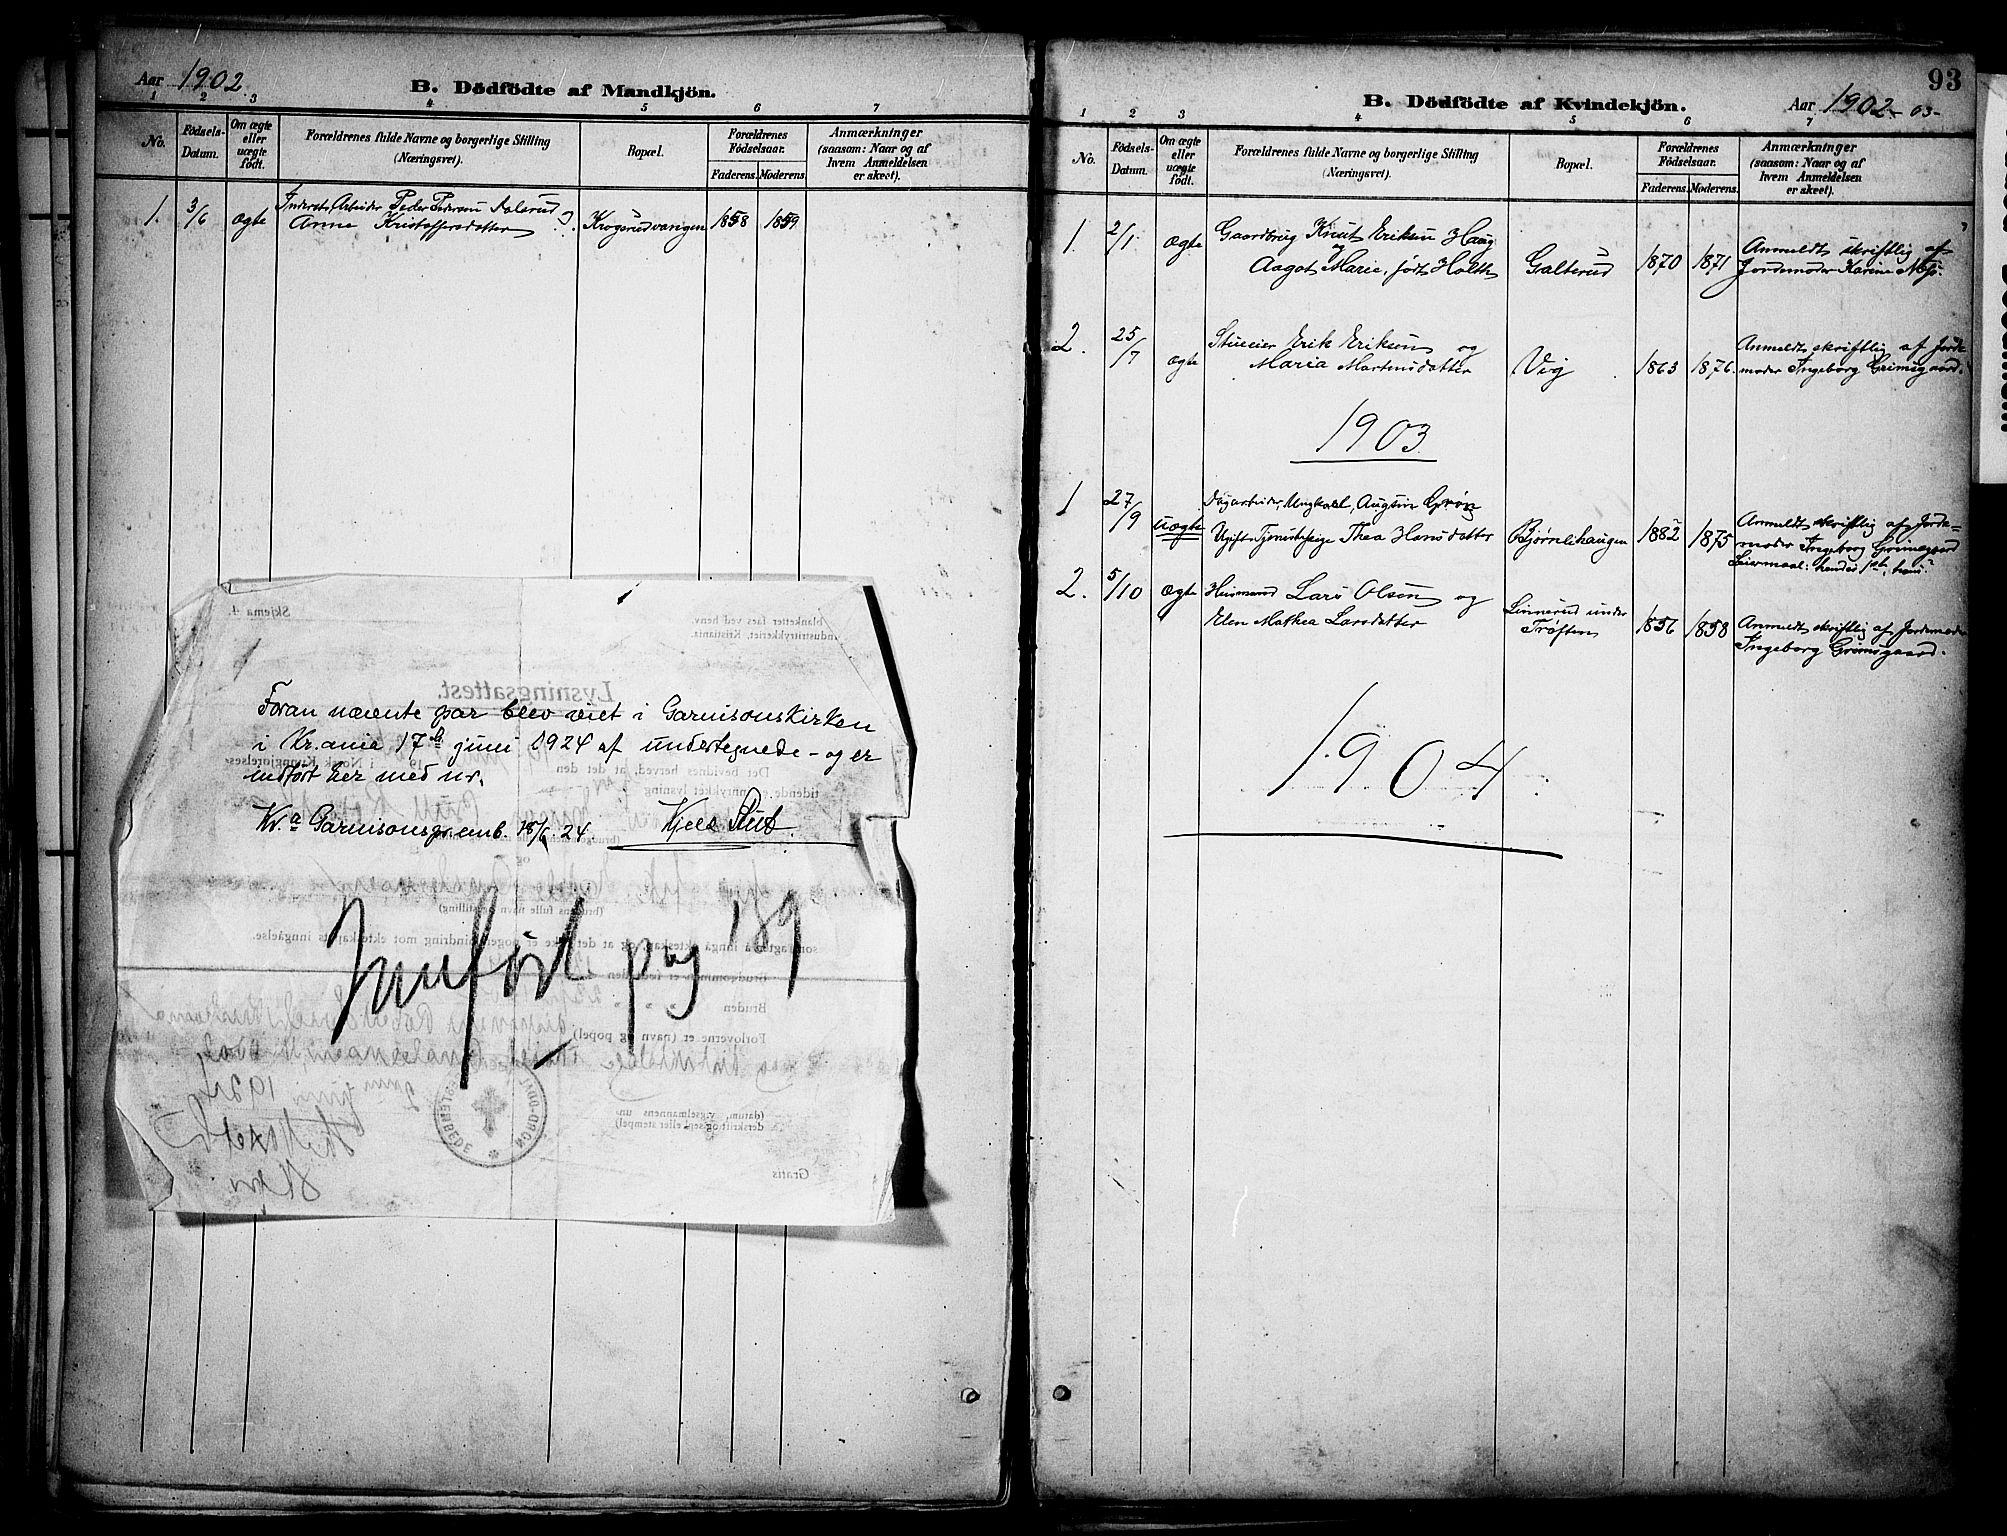 Aar 1902
B. Dödfödte af Mandkjön.
1 2 3 4 5 6 7
No.
Födsels-
Datum.
Om ægte
eller
uægte
født.
Forældrenes fulde Navne og borgerlige Stilling
(Næringsvei).
Bopæl.
Forældrenes
Födselsaar.
Faderens. Moderens.
Anmærkninger
(saasom: Naar og af
hvem Anmeldelsen
er skeet).
1. 3/6 ægte Inderst, Arbeider Peder Pedersen
Anna Kristoffersdatter Krogsrudvangen 1858 1859
Skjema 4.
blanketter faes ved henv.
industritrykkeriet, Kristiania
Lysningsattest.
Foran nævnte par blev viet i Garnisonskirken
i Kr.ania 17de juni 1924 af undertegnede - og er
indført her med nr.
Kr.a Garnisonspr.emb. 18/6 24
Innført pag 189
Det bevidnes herved, at det den 19 i Norsk Kunngjørelses-
tidende er inntrykket lysning
og
(brudens fulle navn og stilling)
Bruden
Forloverne er (navn og bopel)
2nen juni 1924
(datum, vigselmannens un-
derskrift og segl eller stempel)
Gratis
93
B. Dödfödte af Kvindekjön.
Aar 1902-03-
1 2 3 4 5 6 7
No.
Födsels-
Datum.
Om ægte
eller
uægte
født.
Forældrenes fulde Navne og borgerlige Stilling
(Næringsvei).
Bopæl.
Forældrenes
Födselsaar.
Faderens. Moderens.
Anmærkninger
(saasom: Naar og af
hvem Anmeldelsen
er skeet).
1. 2/1 ægte Gaardbrug Knut Eriksen Haug
og
Aagot Marie, født Holth Galterud 1870 1871 Anmeldt skriftlig af
Jordemoder Karine
2. 25/7 ægte Erik Eriksen og
Maria Martinsdatter Vig 1863 1876. Anmeldt skriftlig af Jorde-
moder Ingeborg Grimsgaard.
1903
1 27/9 uægte Dagarbeider, Ungkarl, August
Ugift Tjenestepige Thea Hansdatter Bjørnlihaugen 1882 1875 Anmeldt skriftlig af Jorde-
moder Ingeborg Grimsgaard
Leiermaal: hendes 1ste, hans
2. 5/10 ægte Husmand Lars Olsen og
Elen Mathea Larsdatter Linnerud under
Trøften 1856 1858 Anmeldt skriftlig af Jordemoder
Ingeborg Grimsgaard.
1904